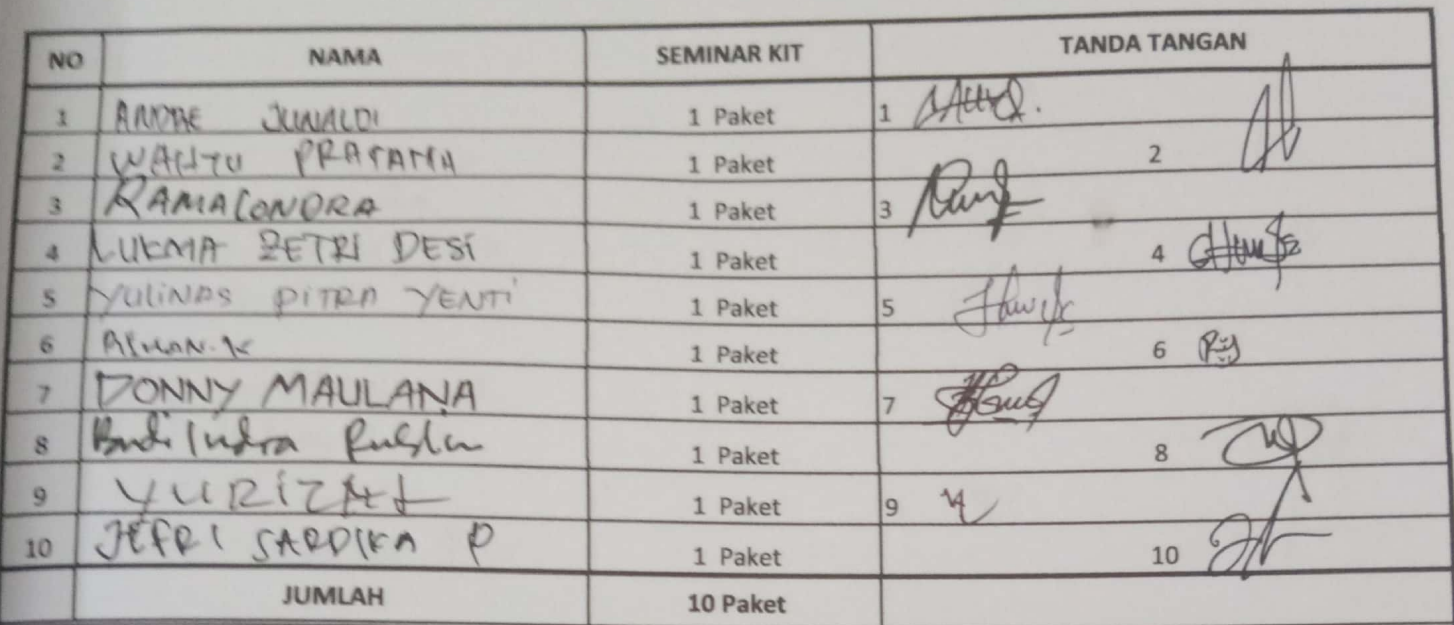 NO NAMA SEMINAR KIT TANDA TANGAN
1 ANDRE JUNALDI 1 Paket 1
2 WAHYU PRATAMA 1 Paket 2
3 RAMACONDRA 1 Paket 3
4 LUKMA ZETRI DESI 1 Paket 4
5 YULINAS PITRA YENTI 1 Paket 5
6 1 Paket 6
7 DONNY MAULANA 1 Paket 7
8 Budi Indra 1 Paket 8
9 YURIZAL 1 Paket 9
10 JEFRI SARDIKA P 1 Paket 10
JUMLAH 10 Paket